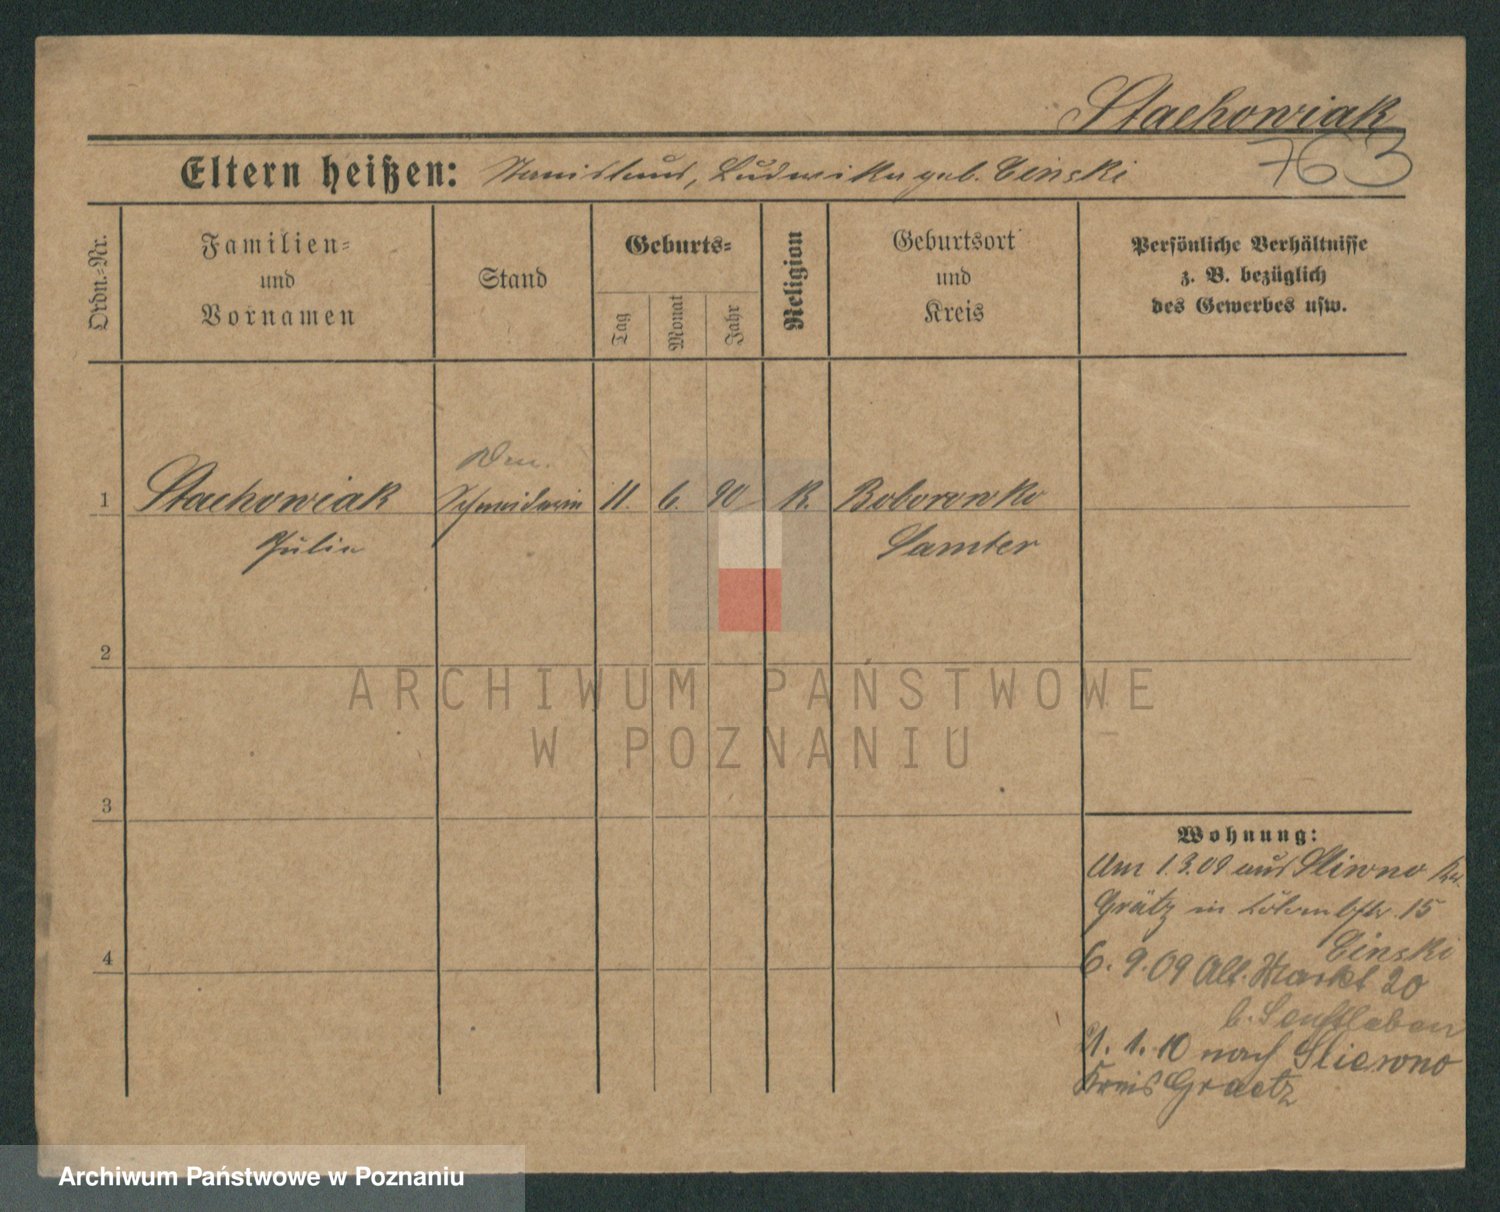 Stachowiak
763
Eltern heißen: Stanislaus, Ludwika geb. Cinski
Ordn.-Nr.
Familien-
und
Vornamen
Stand
Geburts-
Tag
Monat
Jahr
Religion
Geburtsort
und
Kreis
Persönliche Verhältnisse
z. B. bezüglich
des Gewerbes usw.
1 Stachowiak Schneiderin 11. 6. 90 K. Boborowko
Julie Samter
2
3
4
ARCHIWUM PAŃSTWOWE
W POZNANIU
Wohnung:
Am 1.3.09 aus Sliwno Kr.
Grätz in 15
Cinski
6. 9. 09 Alt. Markt 20
b. Senftleben
1. 1. 10 nach Sliewno
Kreis Graetz
Archiwum Państwowe w Poznaniu